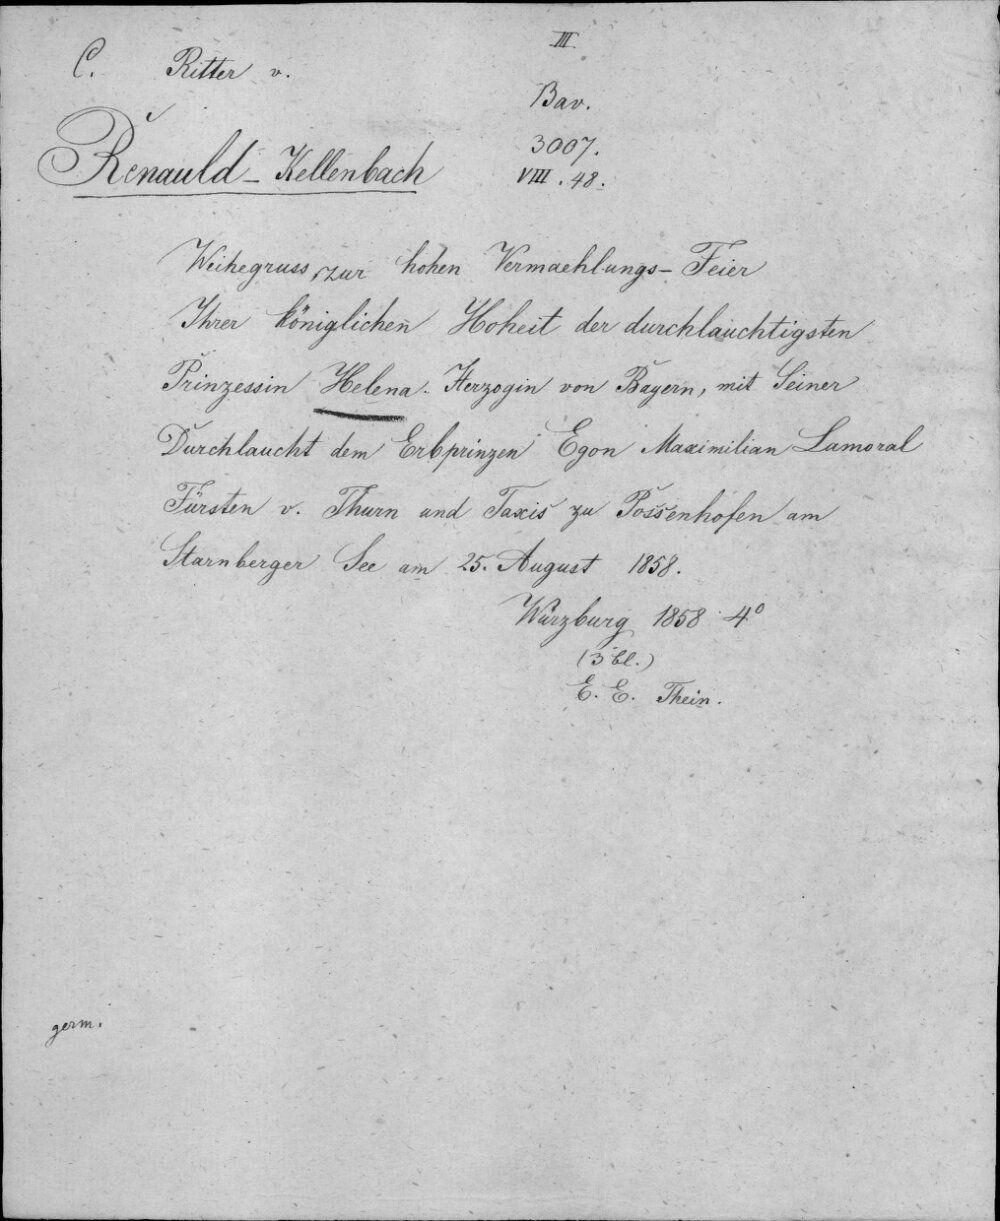 III.
C. Ritter v.
Bav.
3007.
Renauld-Kellenbach
VIII. 48.
Weihegruss zur hohen Vermaehlungs-Feier
Ihrer königlichen Hoheit der durchlauchtigsten
Prinzessin Helena. Herzogin von Bayern, mit Seiner
Durchlaucht dem Erbprinzen Egon Maximilian Lamoral
Fürsten v. Thurn und Taxis zu Possenhofen am
Starnberger See am 25. August 1858.
Würzburg 1858 4°
(3 bl.)
E. E. Thein.
germ.